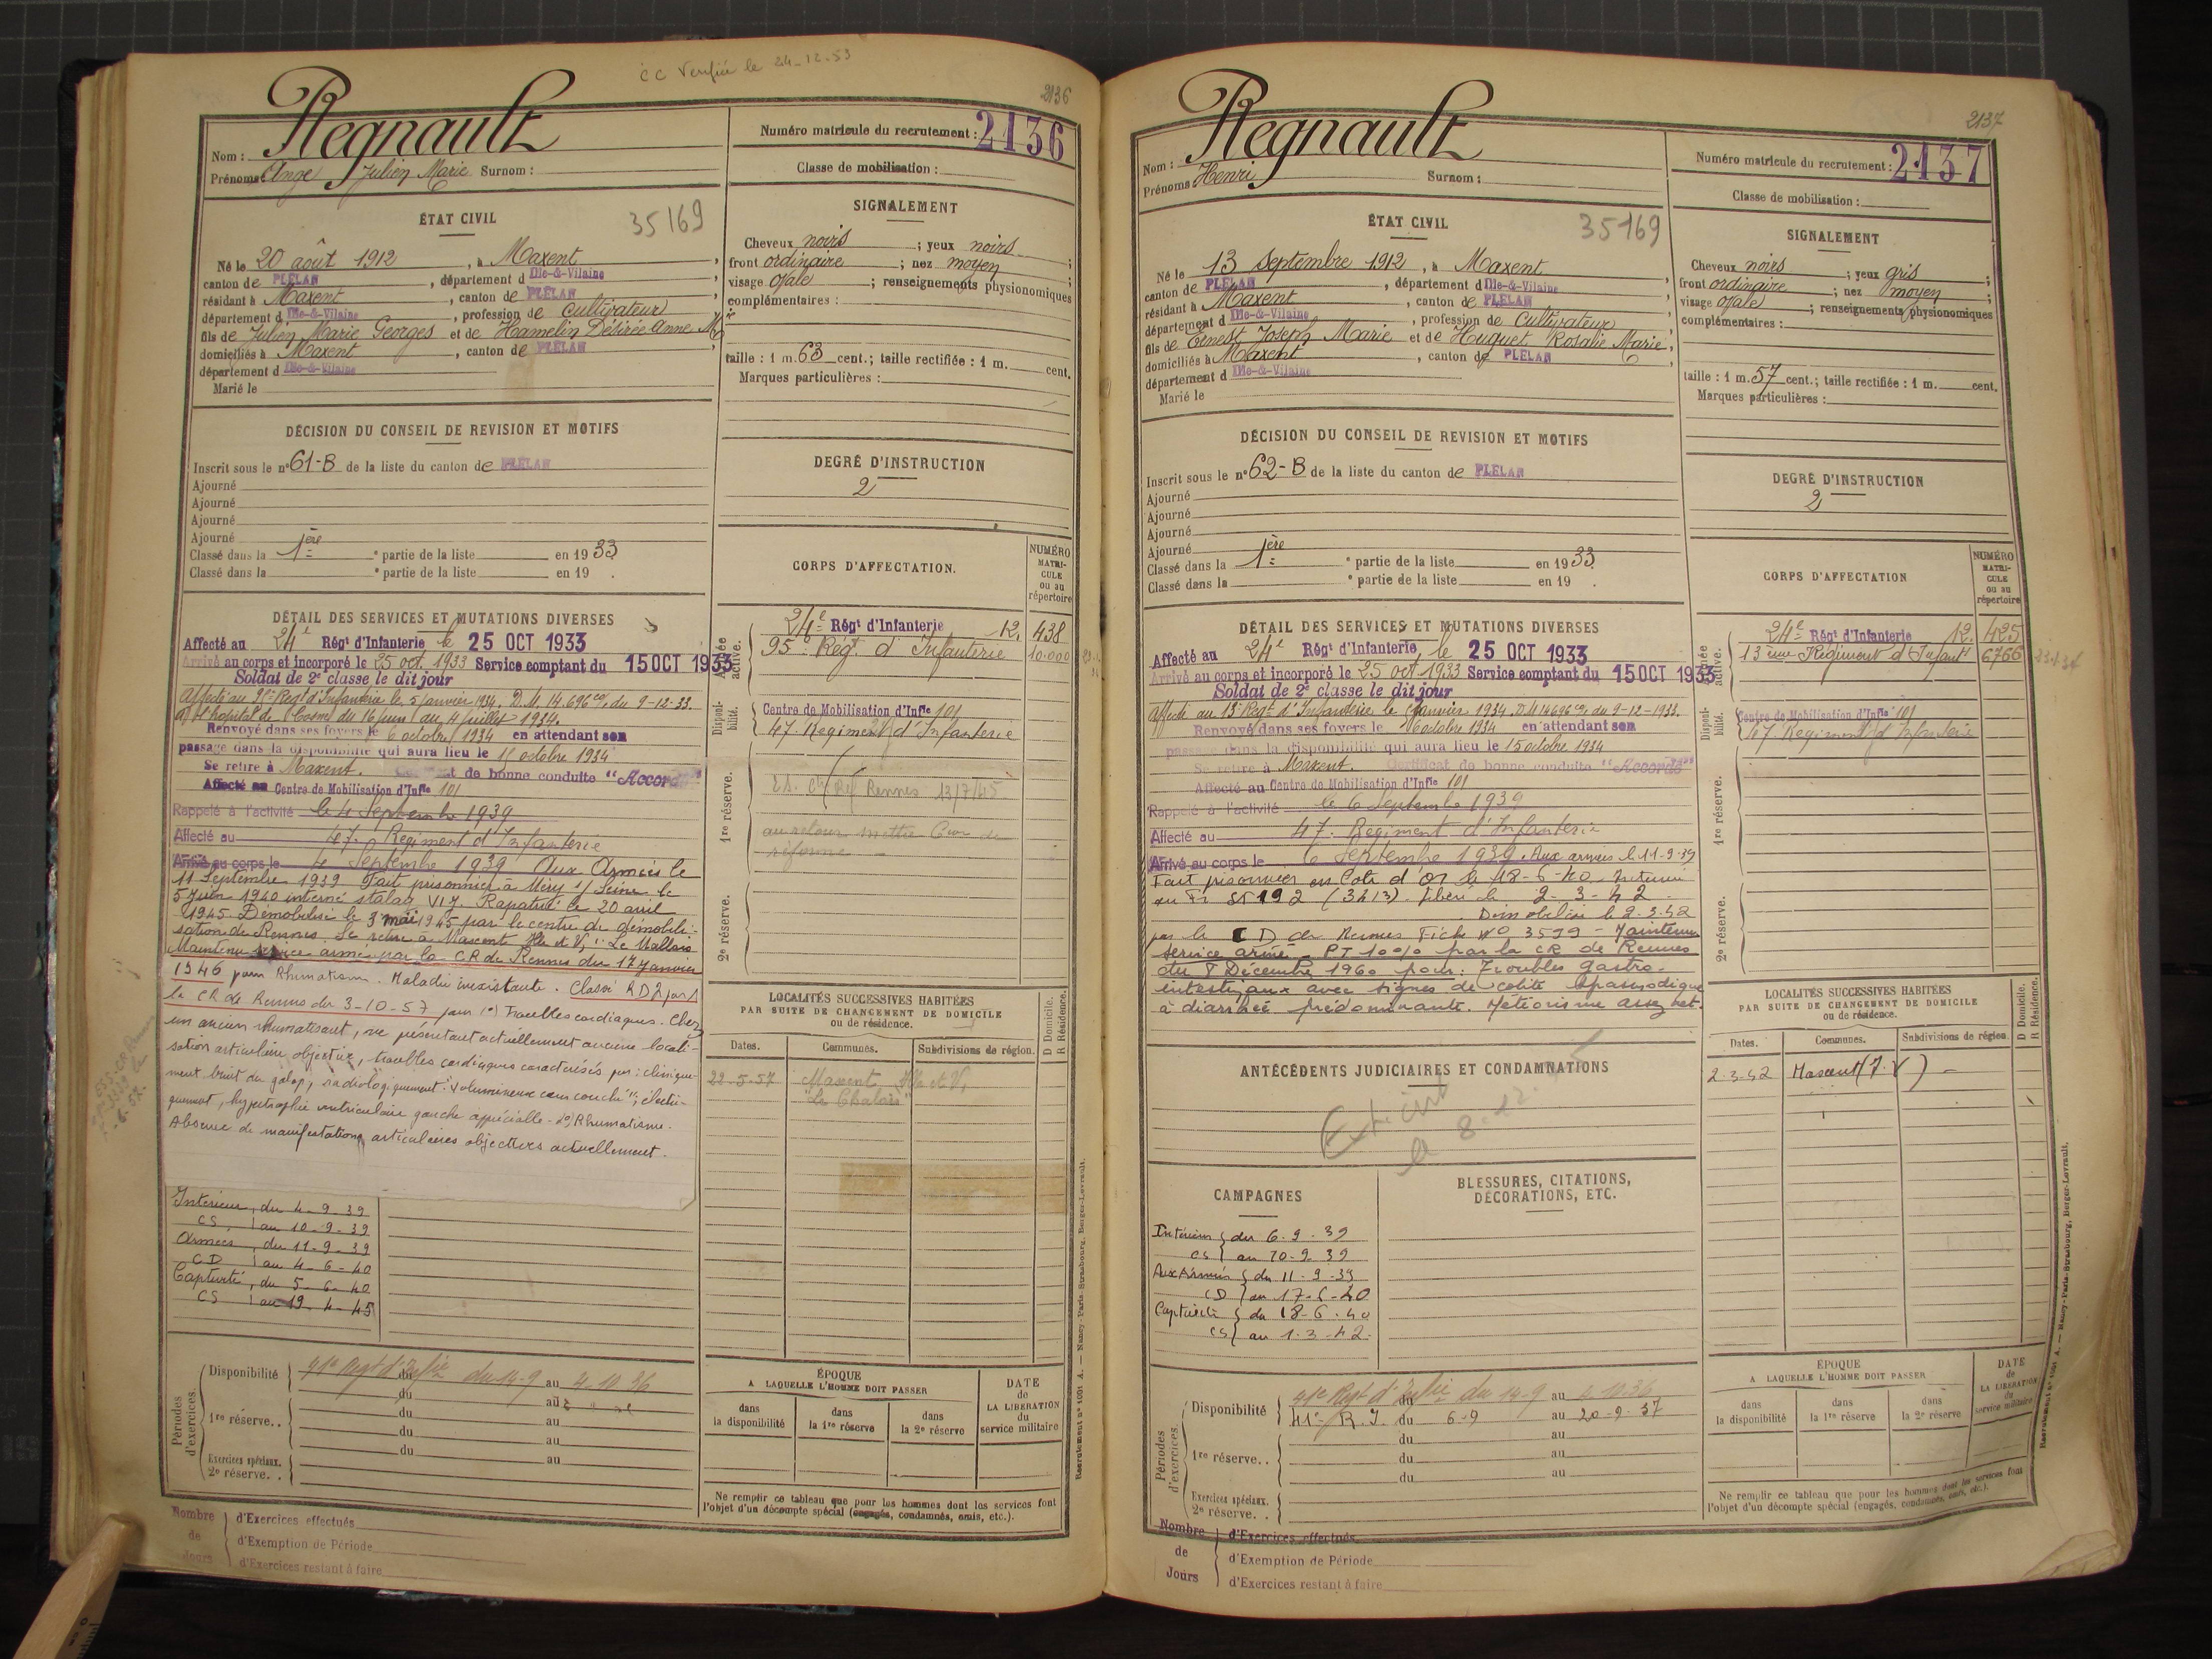 CC Verifiée le 24-12-53
2136
Nom : Regnault
Prénoms : Ange Julien Marie Surnom :
Numéro matricule du recrutement : 2136
Classe de mobilisation :
ÉTAT CIVIL
35169
Né le 20 août 1912, à Maxent,
canton de PLÉLAN, département d Ille-&-Vilaine
résidant à Maxent, canton de PLÉLAN,
département d Ille-&-Vilaine, profession de Cultivateur
fils de Julien Marie Georges et de Hamelin Désirée Anne Mie
domiciliés à Maxent, canton de PLÉLAN,
département d Ille-&-Vilaine
Marié le
SIGNALEMENT
Cheveux noirs ; yeux noirs ;
front ordinaire ; nez moyen ;
visage ovale ; renseignements physionomiques
complémentaires :
taille : 1 m. 63 cent.; taille rectifiée : 1 m. cent.
Marques particulières :
DÉCISION DU CONSEIL DE REVISION ET MOTIFS
Inscrit sous le n° 61-B de la liste du canton de PLÉLAN
Ajourné
Ajourné
Ajourné
Ajourné
Classé dans la 1ère e partie de la liste en 1933
Classé dans la e partie de la liste en 19 .
DEGRÉ D'INSTRUCTION
2
DÉTAIL DES SERVICES ET MUTATIONS DIVERSES
Affecté au 24e Régt d'Infanterie le 25 OCT 1933
Arrivé au corps et incorporé le 25 oct. 1933 Service comptant du 15 OCT 1933
Soldat de 2e classe le dit jour
Affecté au 95e Regt d'Infanterie le 5 janvier 1934. D.M. 14.696 du 9-12-33.
à l'hopital de Cosne du 16 juin au 4 juillet 1934.
Renvoyé dans ses foyers le 6 octobre 1934 en attendant son
passage dans la disponibilité qui aura lieu le 15 octobre 1934
Se retire à Maxent. Certificat de bonne conduite "Accordé"
Affecté au Centre de Mobilisation d'Infie 101
Rappelé à l'activité le 4 Septembre 1939
Affecté au 47e Regiment d'Infanterie
Arrivé au corps le 4 Septembre 1939 Aux Armées le
11 Septembre 1939 Fait prisonnier à Méry s/ Seine le
5 Juin 1940 interné stalag VI J. Rapatrié le 20 avril
1945. Démobilisé le 3 mai 1945 par le centre de démobili-
sation de Rennes Se retire à Maxent Ille et V, "Le Vallais
Maintenu service armé par la C.R de Rennes du 17 janvier
1946 pour Rhumatism. Maladie inexistante. Classé RD2 par
la CR de Rennes du 3-10-57 pour 1°) Troubles cardiaques. Chez
un ancien rhumatisant, ne présentant actuellement aucune locali-
sation articulaire objective, troubles cardiaques caractérisés par : clinique-
ment bruit du galop, radiologiquement : "volumineux cœur couché"; électri-
quement, hypertrophie ventriculaire gauche appréciable - 2°) Rhumatisme.
Absence de manifestations articulaires objectives actuellement.
Intérieur, du 4-9-39
CS, au 10-9-39
Armées, du 11-9-39
CD au 4-6-40
Captivité, du 5-6-40
CS au 19-4-45
CORPS D'AFFECTATION.
NUMÉRO MATRICULE ou au répertoire
Armée active.
24e Régt d'Infanterie 12. 438
95e Régt. d'Infanterie 10.000
Disponibilité.
Centre de Mobilisation d'Infie 101
47e Regiment d'Infanterie
1re réserve.
Rennes 13/7/45
au retour mettre
réforme
2e réserve.
LOCALITÉS SUCCESSIVES HABITÉES
PAR SUITE DE CHANGEMENT DE DOMICILE
ou de résidence.
D Domicile.
R Résidence.
Dates. Communes. Subdivisions de région.
22-5-57 Maxent, Ille et V,
"Le Chalais"
Périodes d'exercices.
Disponibilité 41e Regt d'Infie du 14-9 au 4-10-36
du au
1re réserve. du au
du au
du au
Exercices spéciaux.
2e réserve. .
ÉPOQUE
A LAQUELLE L'HOMME DOIT PASSER
dans la disponibilité
dans la 1re réserve
dans la 2e réserve
DATE de LA LIBÉRATION du service militaire
Ne remplir ce tableau que pour les hommes dont les services font
l'objet d'un décompte spécial (engagés, condamnés, omis, etc.).
Nombre de Jours
d'Exercices effectués
d'Exemption de Période
d'Exercices restant à faire
Recrutement n° 1001 A. — Nancy-Paris-Strasbourg, Berger-Levrault.
2137
Nom : Regnault
Prénoms : Henri Surnom :
Numéro matricule du recrutement : 2137
Classe de mobilisation :
ÉTAT CIVIL
35169
Né le 13 Septembre 1912, à Maxent
canton de PLÉLAN, département d Ille-&-Vilaine
résidant à Maxent, canton de PLÉLAN
département d Ille-&-Vilaine, profession de Cultivateur
fils de Ernest Joseph Marie et de Huguet Rosalie Marie,
domiciliés à Maxent, canton de PLÉLAN
département d Ille-&-Vilaine
Marié le
SIGNALEMENT
Cheveux noirs ; yeux gris ;
front ordinaire ; nez moyen ;
visage ovale ; renseignements physionomiques
complémentaires :
taille : 1 m. 57 cent.; taille rectifiée : 1 m. cent.
Marques particulières :
DÉCISION DU CONSEIL DE REVISION ET MOTIFS
Inscrit sous le n° 62-B de la liste du canton de PLÉLAN
Ajourné
Ajourné
Ajourné
Ajourné
Classé dans la 1ère e partie de la liste en 1933
Classé dans la e partie de la liste en 19 .
DEGRÉ D'INSTRUCTION
2
DÉTAIL DES SERVICES ET MUTATIONS DIVERSES
Affecté au 24e Régt d'Infanterie, le 25 OCT 1933
Arrivé au corps et incorporé le 25 oct 1933 Service comptant du 15 OCT 1933
Soldat de 2e classe le dit jour
Affecté au 13e Regt d'Infanterie le janvier 1934. D.M 14696 du 9-12-1933.
Renvoyé dans ses foyers le 6 octobre 1934 en attendant son
passage dans la disponibilité qui aura lieu le 15 octobre 1934
Se retire à Maxent. Certificat de bonne conduite "Accordé"
Affecté au Centre de Mobilisation d'Infie 101
Rappelé à l'activité le 6 Septembre 1939
Affecté au 47e Regiment d'Infanterie
Arrivé au corps le 6 Septembre 1939. Aux armées le 11-9-39
Fait prisonnier en Cote d'or le 18-6-40 Interné
au 192 (3413). libéré le 2-3-42
Démobilisé le 2-3-42
par le C D de Rennes Fiche No 3519 - Maintenu
service armé - PT 10% par la CR de Rennes
du 8 Décembre 1960 pour : Troubles gastro-
intestinaux avec signes de colite spasmodique
à diarrhée prédominante. Météorisme assez net.
ANTÉCÉDENTS JUDICIAIRES ET CONDAMNATIONS
CAMPAGNES
Intérieur du 6-9-39
CS au 10-9-39
Aux Armées du 11-9-39
CD au 17-6-40
Captivité du 18-6-40
CS au 1-3-42.
BLESSURES, CITATIONS,
DÉCORATIONS, ETC.
CORPS D'AFFECTATION
NUMÉRO MATRICULE ou au répertoire
Armée active.
24e Régt d'Infanterie 12. 425
13eme Régiment d'Infantie 6766
Disponibilité.
Centre de Mobilisation d'Infie 101
47e Regiment d'Infanterie
1re réserve.
2e réserve.
LOCALITÉS SUCCESSIVES HABITÉES
PAR SUITE DE CHANGEMENT DE DOMICILE
ou de résidence.
D Domicile.
R Résidence.
Dates. Communes. Subdivisions de région.
2-3-42 Maxent (I.V)
Périodes d'exercices
Disponibilité 41e Regt d'Infie du 14-9 au 4-10-36
41e R.I. du 6-9 au 20-9-37
du au
1re réserve. . du au
du au
Exercices spéciaux.
2e réserve. .
ÉPOQUE
A LAQUELLE L'HOMME DOIT PASSER
dans la disponibilité
dans la 1re réserve
dans la 2e réserve
DATE de LA LIBÉRATION du service militaire
Ne remplir ce tableau que pour les hommes dont les services font
l'objet d'un décompte spécial (engagés, condamnés, omis, etc.).
Nombre de Jours
d'Exercices effectués
d'Exemption de Période
d'Exercices restant à faire
Recrutement n° 1001 A. — Nancy-Paris-Strasbourg, Berger-Levrault.